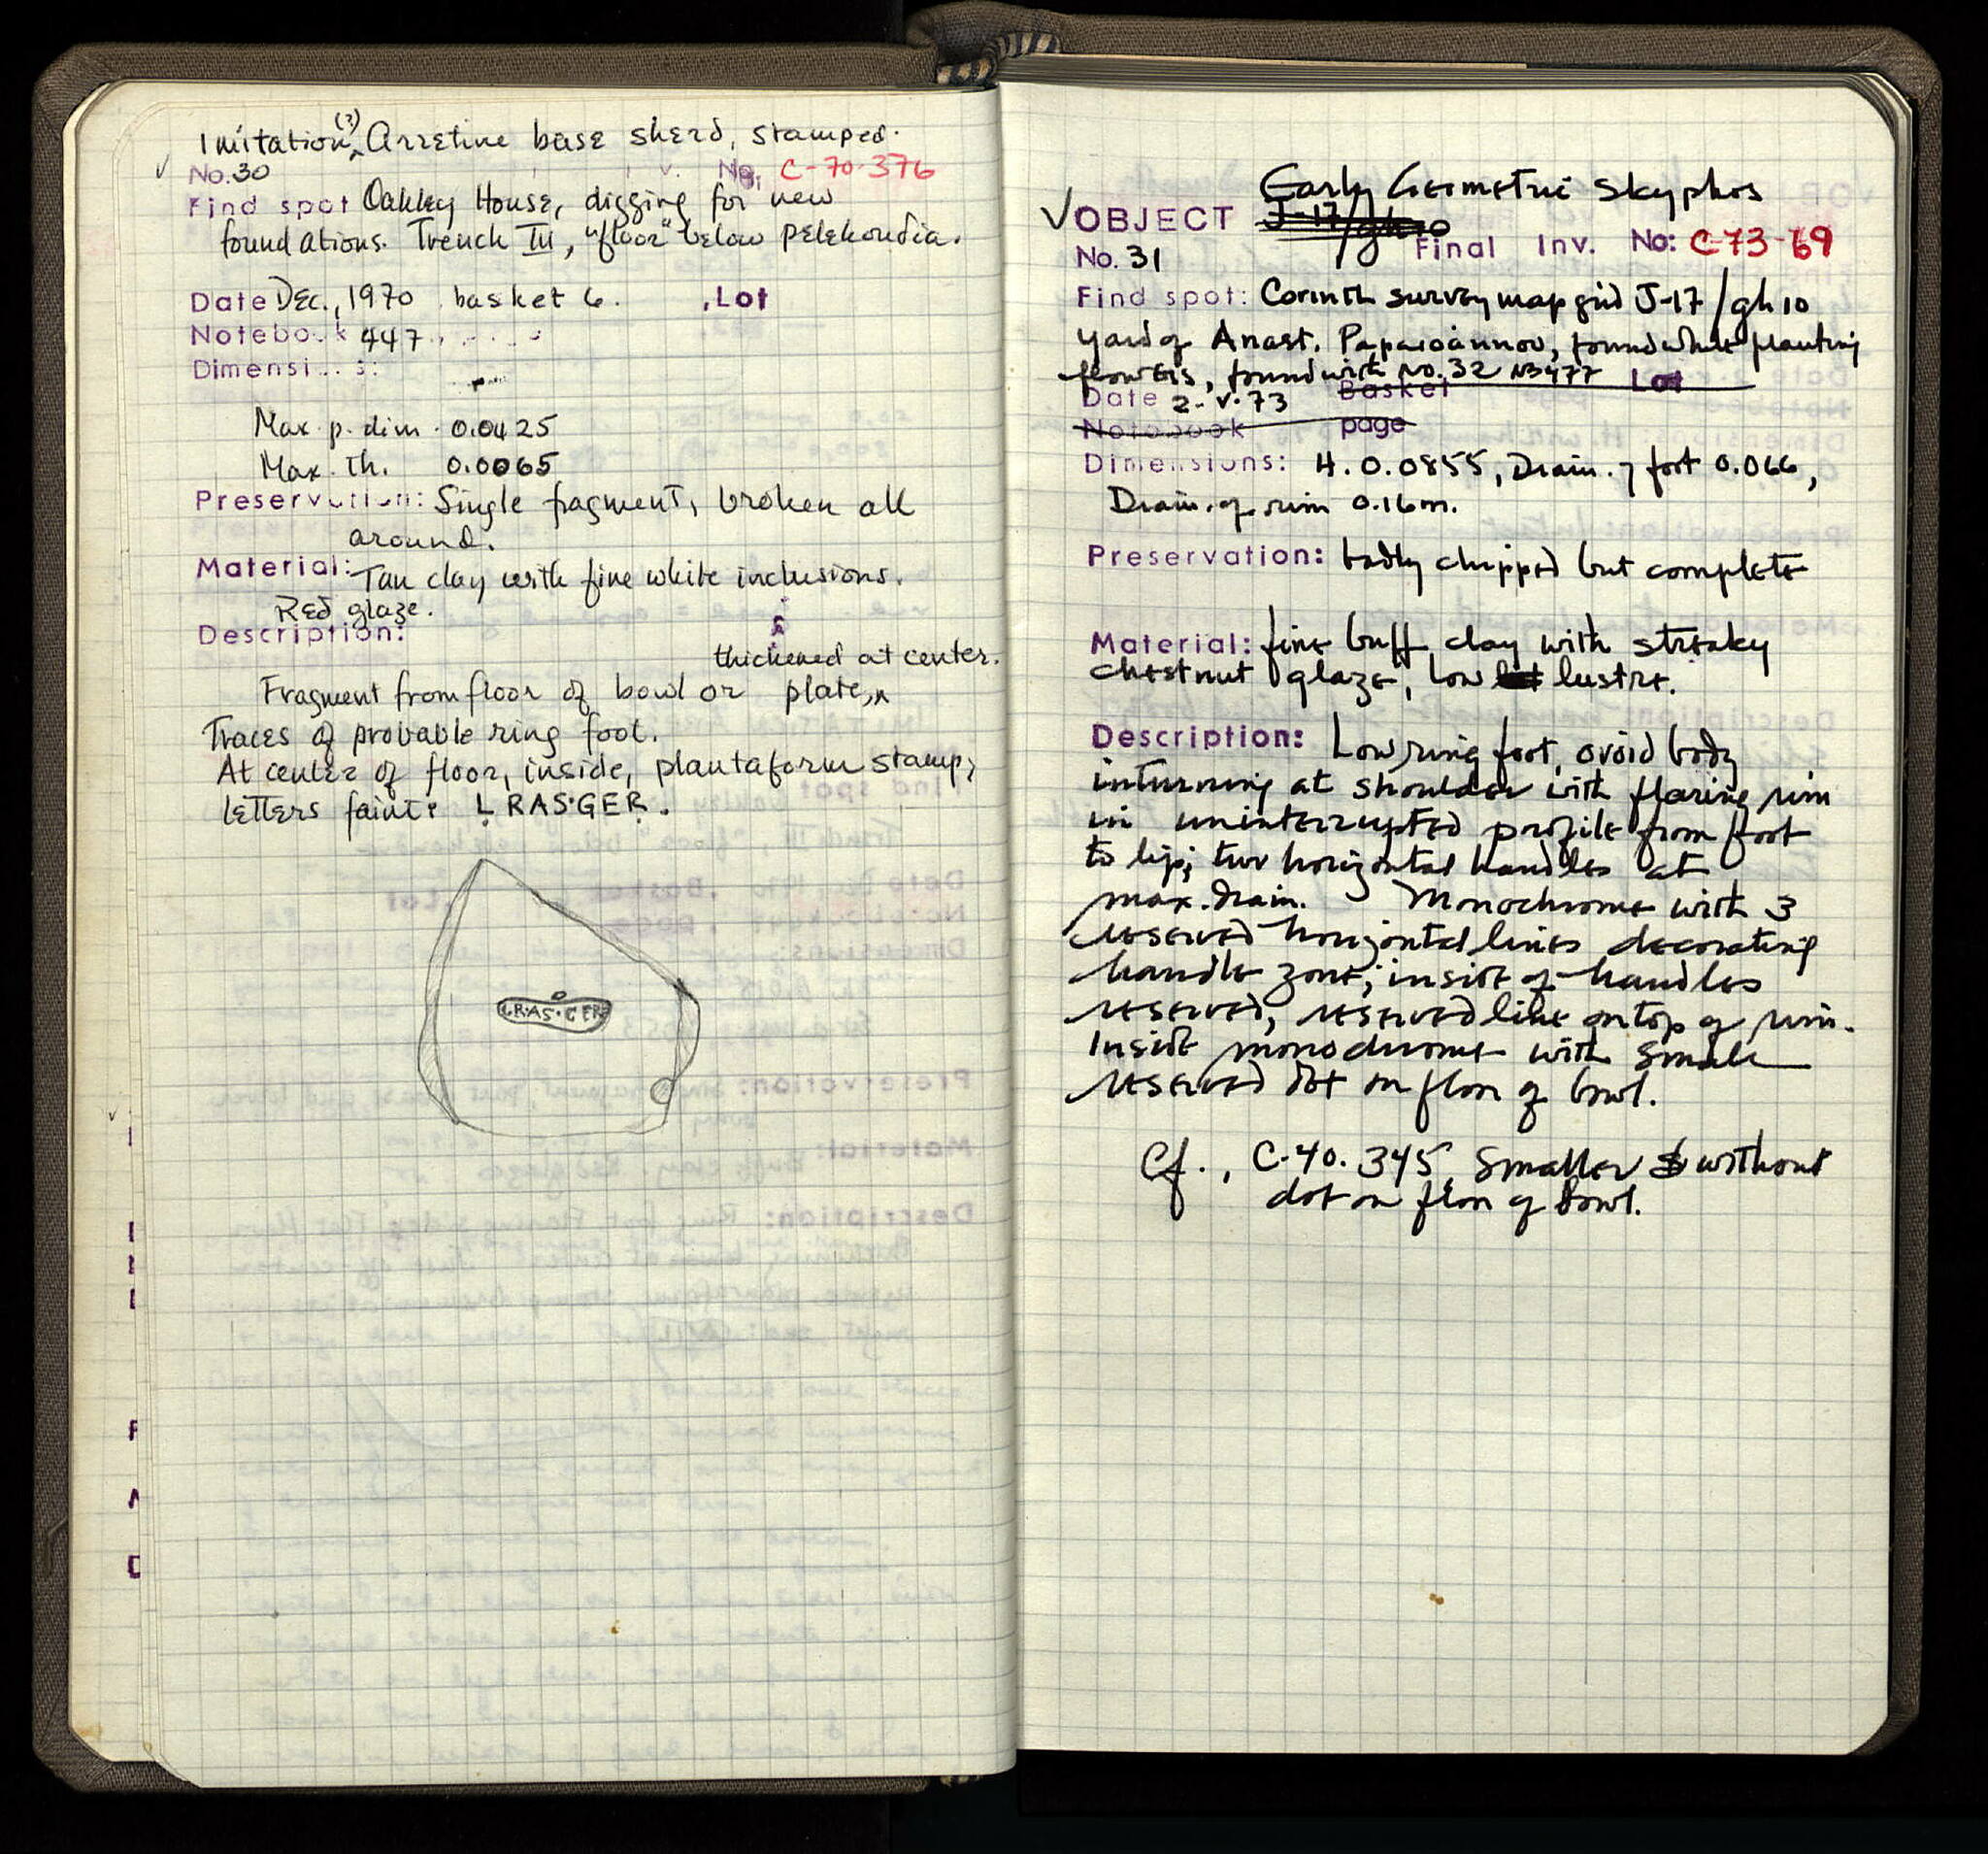 Imitation (?) Arretine base sherd, stamped.
✓ No. 30 No. C-70-376
Find spot Oakley House, digging for new
foundations. Trench III, "floor" below pelekoudia.
Date Dec., 1970 basket 6. , Lot
Notebook 447
Dimensi s:
Max. p. dim. 0.0425
Max. Th. 0.0065
Preservation: Single fragment, broken all
around.
Material: Tan clay with fine white inclusions.
Red glaze.
Description:
thickened at center.
Fragment from floor of bowl or plate,
Traces of probable ring foot.
At center of floor, inside, plantaform stamp;
letters faint: L RAS·GER.
L·R·AS·GER
Early Geometric skyphos
✓ OBJECT J-17/gh10
No. 31 Final Inv. No: C-73-69
Find spot: Corinth survey map grid J-17/gh10
yard of Anast. Papaioannou, found while planting
flowers, found with No. 32 NB477 Lot
Date 2.v.73 Basket
Notebook page
Dimensions: H. 0.0855, Diam. of foot 0.066,
Diam. of rim 0.16m.
Preservation: badly chipped but complete
Material: fine buff clay with streaky
chestnut glaze, low lustre.
Description: Low ring foot, ovoid body
inturning at shoulder with flaring rim
in uninterrupted profile from foot
to lip; two horizontal handles at
max. diam. Monochrome with 3
reserved horizontal lines decorating
handle zone; inside of handles
reserved, reserved line on top of rim.
Inside monochrome with small
reserved dot on floor of bowl.
Cf., C.40.345, smaller & without
dot on floor of bowl.